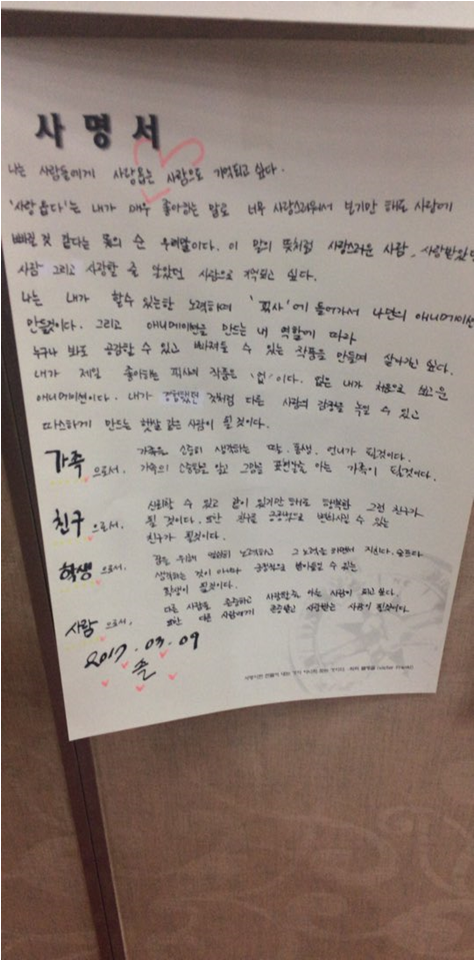 사명서
나는 사람들에게 사랑옵는 사람으로 기억되고 싶다.
'사랑옵다'는 내가 매우 좋아하는 말로 너무 사랑스러워서 보기만 해도 사랑에
빠질 것 같다는 뜻의 순 우리말이다. 이 말의 뜻처럼 사랑스러운 사람, 사랑받았던
사람 그리고 사랑할 줄 알았던 사람으로 기억되고 싶다.
나는 내가 할 수 있는한 노력하여 '픽사'에 들어가서 나만의 애니메이션
만들것이다. 그리고 애니메이션을 만드는 내 역할에 따라
누구나 봐도 공감할 수 있고 빠져들 수 있는 작품을 만들며 살아가고 싶다.
내가 제일 좋아하는 픽사의 작품은 '업'이다. 업은 내가 처음으로 보고 운
애니메이션이다. 내가 경험했던 것처럼 다른 사람의 감정을 녹일 수 있고
따스하게 만드는 햇살 같은 사람이 될 것이다.
가족 으로서, 가족을 소중히 생각하는 딸, 동생, 언니가 될것이다.
가족의 소중함을 알고 그것을 표현할줄 아는 가족이 될것이다.
친구 으로서, 신뢰할 수 있고 같이 있기만 해도 행복한 그런 친구가
될 것이다. 또한 친구를 긍정적으로 변화시킬 수 있는
친구가 될것이다.
학생 으로서, 꿈을 위해 열심히 노력하고 그 노력을 하면서 지친다, 슬프다
생각하는 것이 아니라 긍정적으로 받아들일 수 있는
학생이 될것이다.
사람 으로서, 다른 사람을 존중하고 사랑할줄 아는 사람이 되고 싶다.
또한 다른 사람에게 존중받고 사랑받는 사람이 될것이다.
2017.03.09
솔